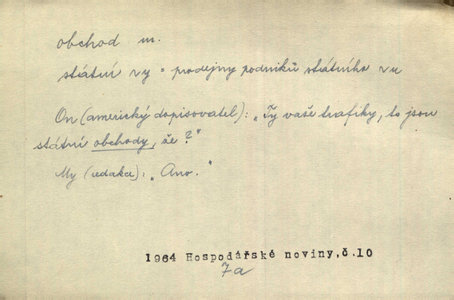 obchod m.
státní ~y = prodejny podniků státního ~u
On (americký dopisovatel): „Ty vaše trafiky, to jsou
státní obchody, že?"
My (redakce): „Ano."
1964 Hospodářské noviny,č.10
7a